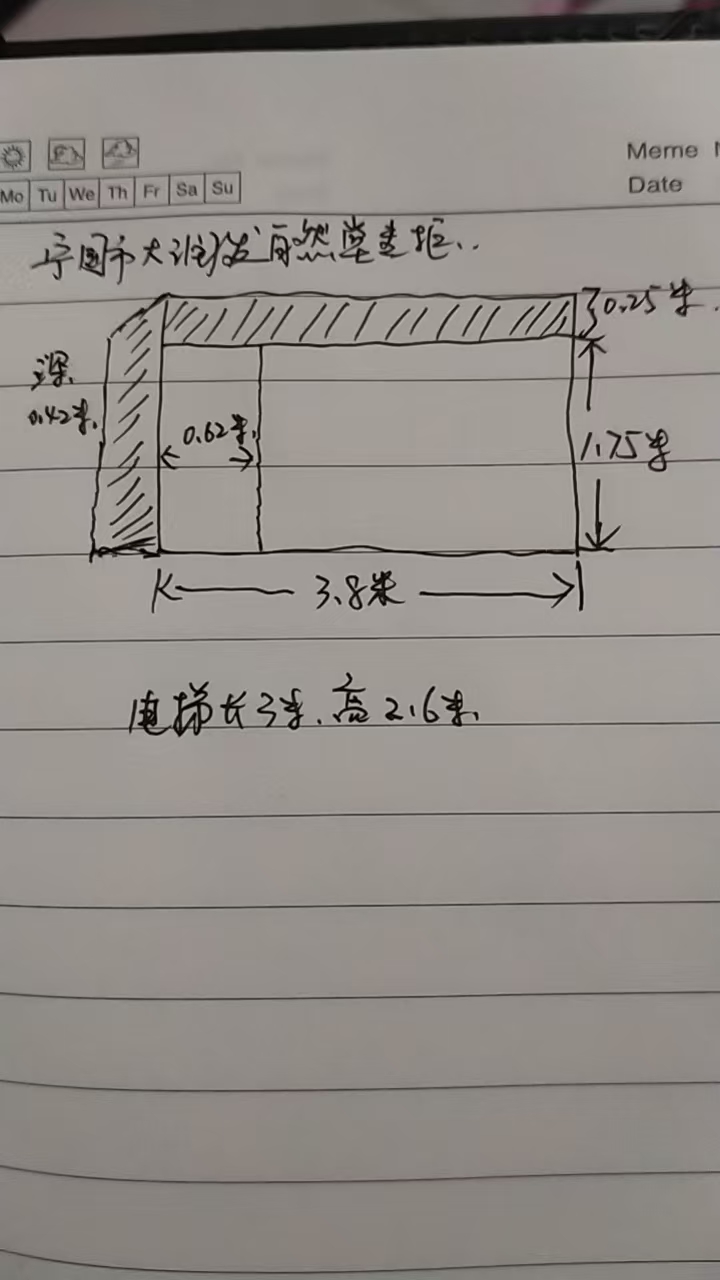 Meme
Date
Mo Tu We Th Fr Sa Su
宁国市大润发自然堂专柜..
0.25米.
深.
0.42米.
0.62米.
1.75米
3.8米
电梯长3米.高2.6米.